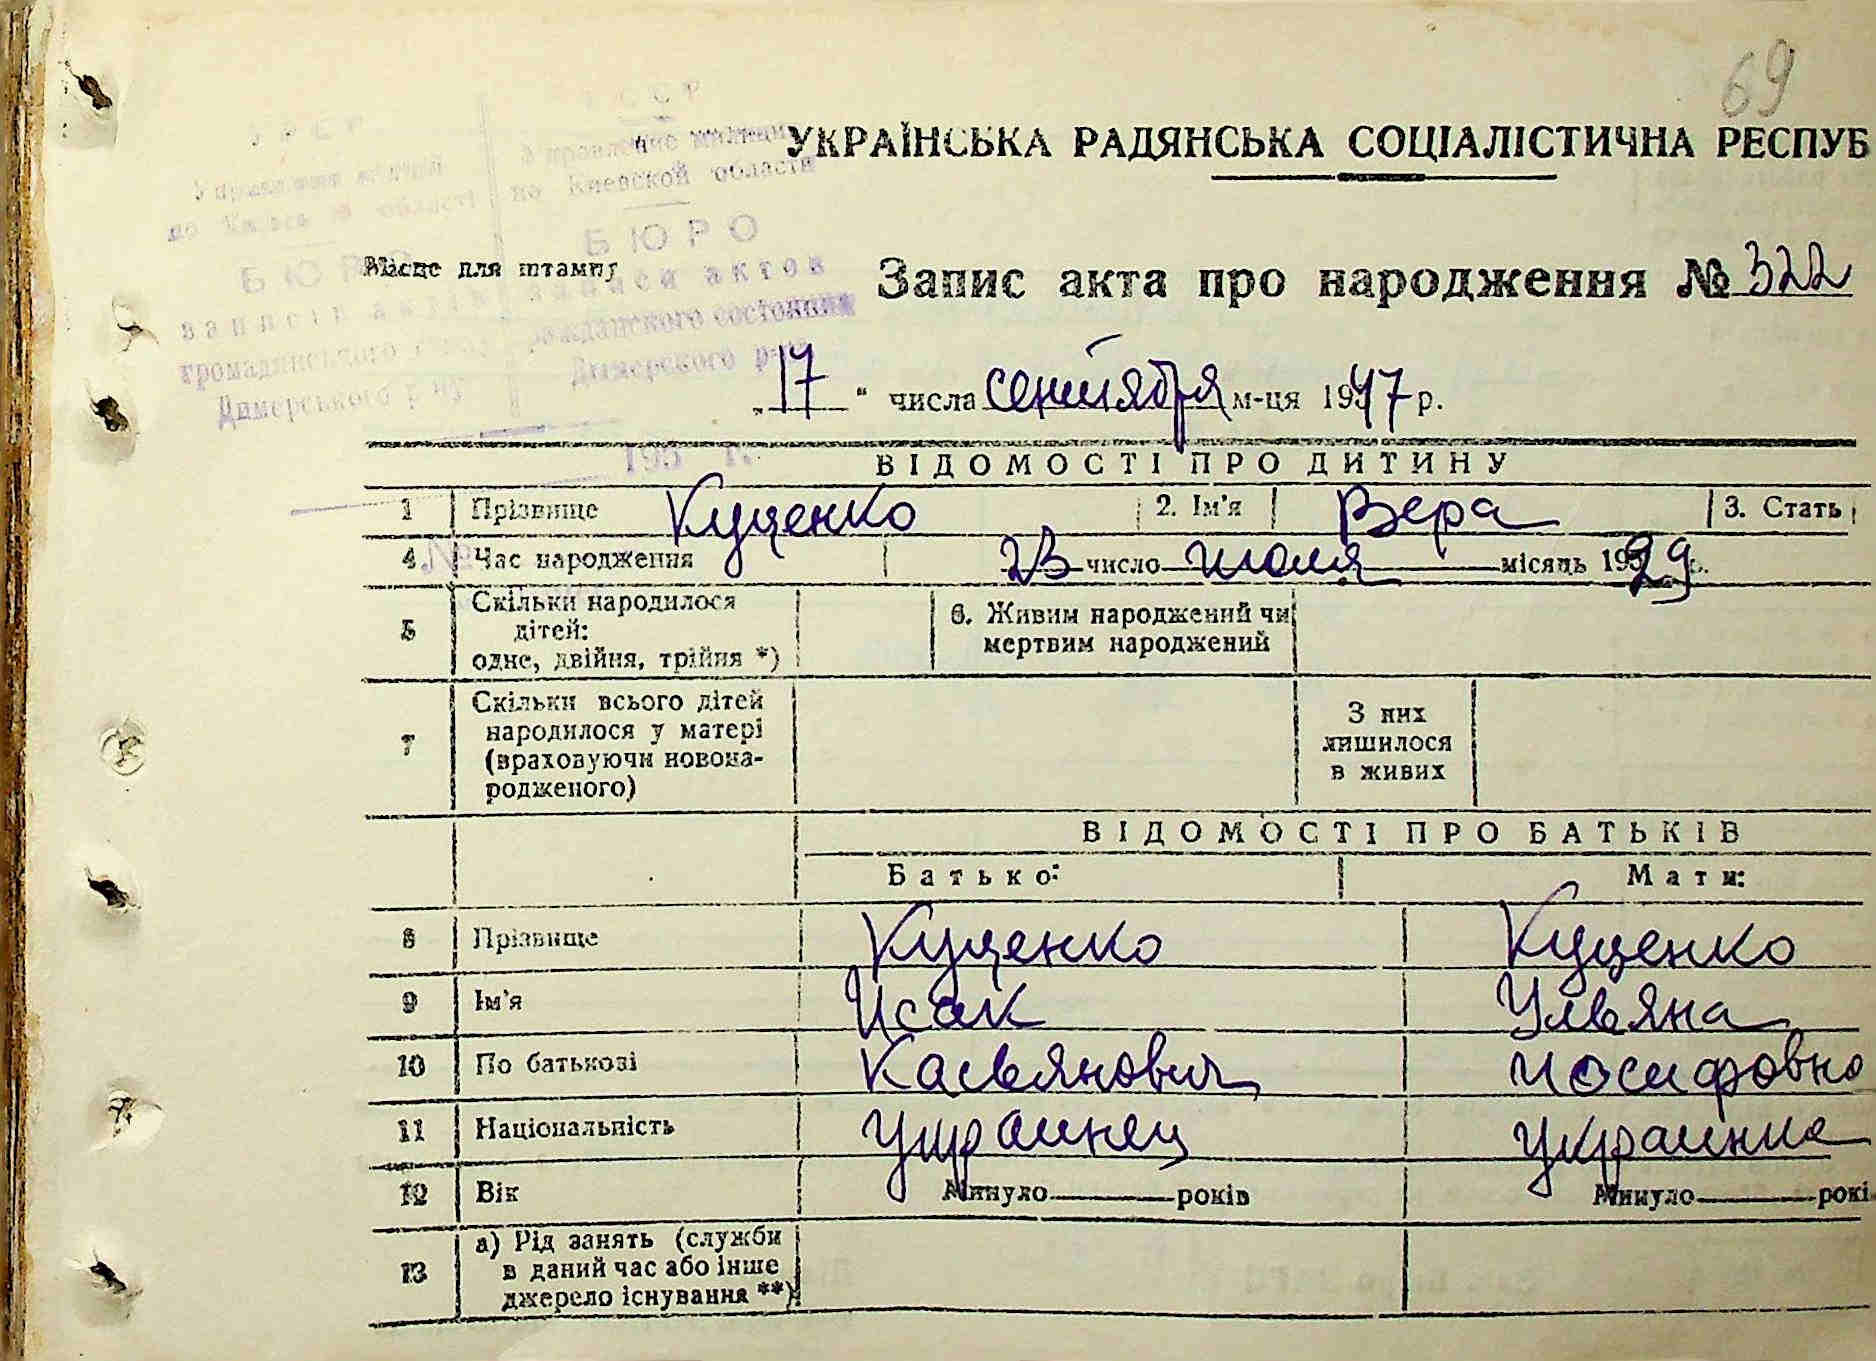 69
УКРАЇНСЬКА РАДЯНСЬКА СОЦІАЛІСТИЧНА РЕСПУБ
УРСР
Управление милиции
по Киевской области
БЮРО
записи актов
гражданского состояния
Димерского р-на
БЮРО
записів актів
громадянського
Димерського р-ну
195 г.
№
Місце для штампу
Запис акта про народження № 322
„ 17 “ числа сентября м-ця 1947 р.
ВІДОМОСТІ ПРО ДИТИНУ
1 Прізвище Куценко 2. Ім'я Вера 3. Стать
4 Час народження 23 число июля місяць 1929 р.
5 Скільки народилося дітей: одне, двійня, трійня *) 6. Живим народжений чи мертвим народжений
7 Скільки всього дітей народилося у матері (враховуючи новонародженого) З них лишилося в живих
ВІДОМОСТІ ПРО БАТЬКІВ
Батько: Мати:
8 Прізвище Куценко Куценко
9 Ім'я Исак Ульяна
10 По батькові Касьянович Иосифовна
11 Національність украинец украинка
12 Вік Минуло років Минуло рокі
13 а) Рід занять (служби в даний час або інше джерело існування **)